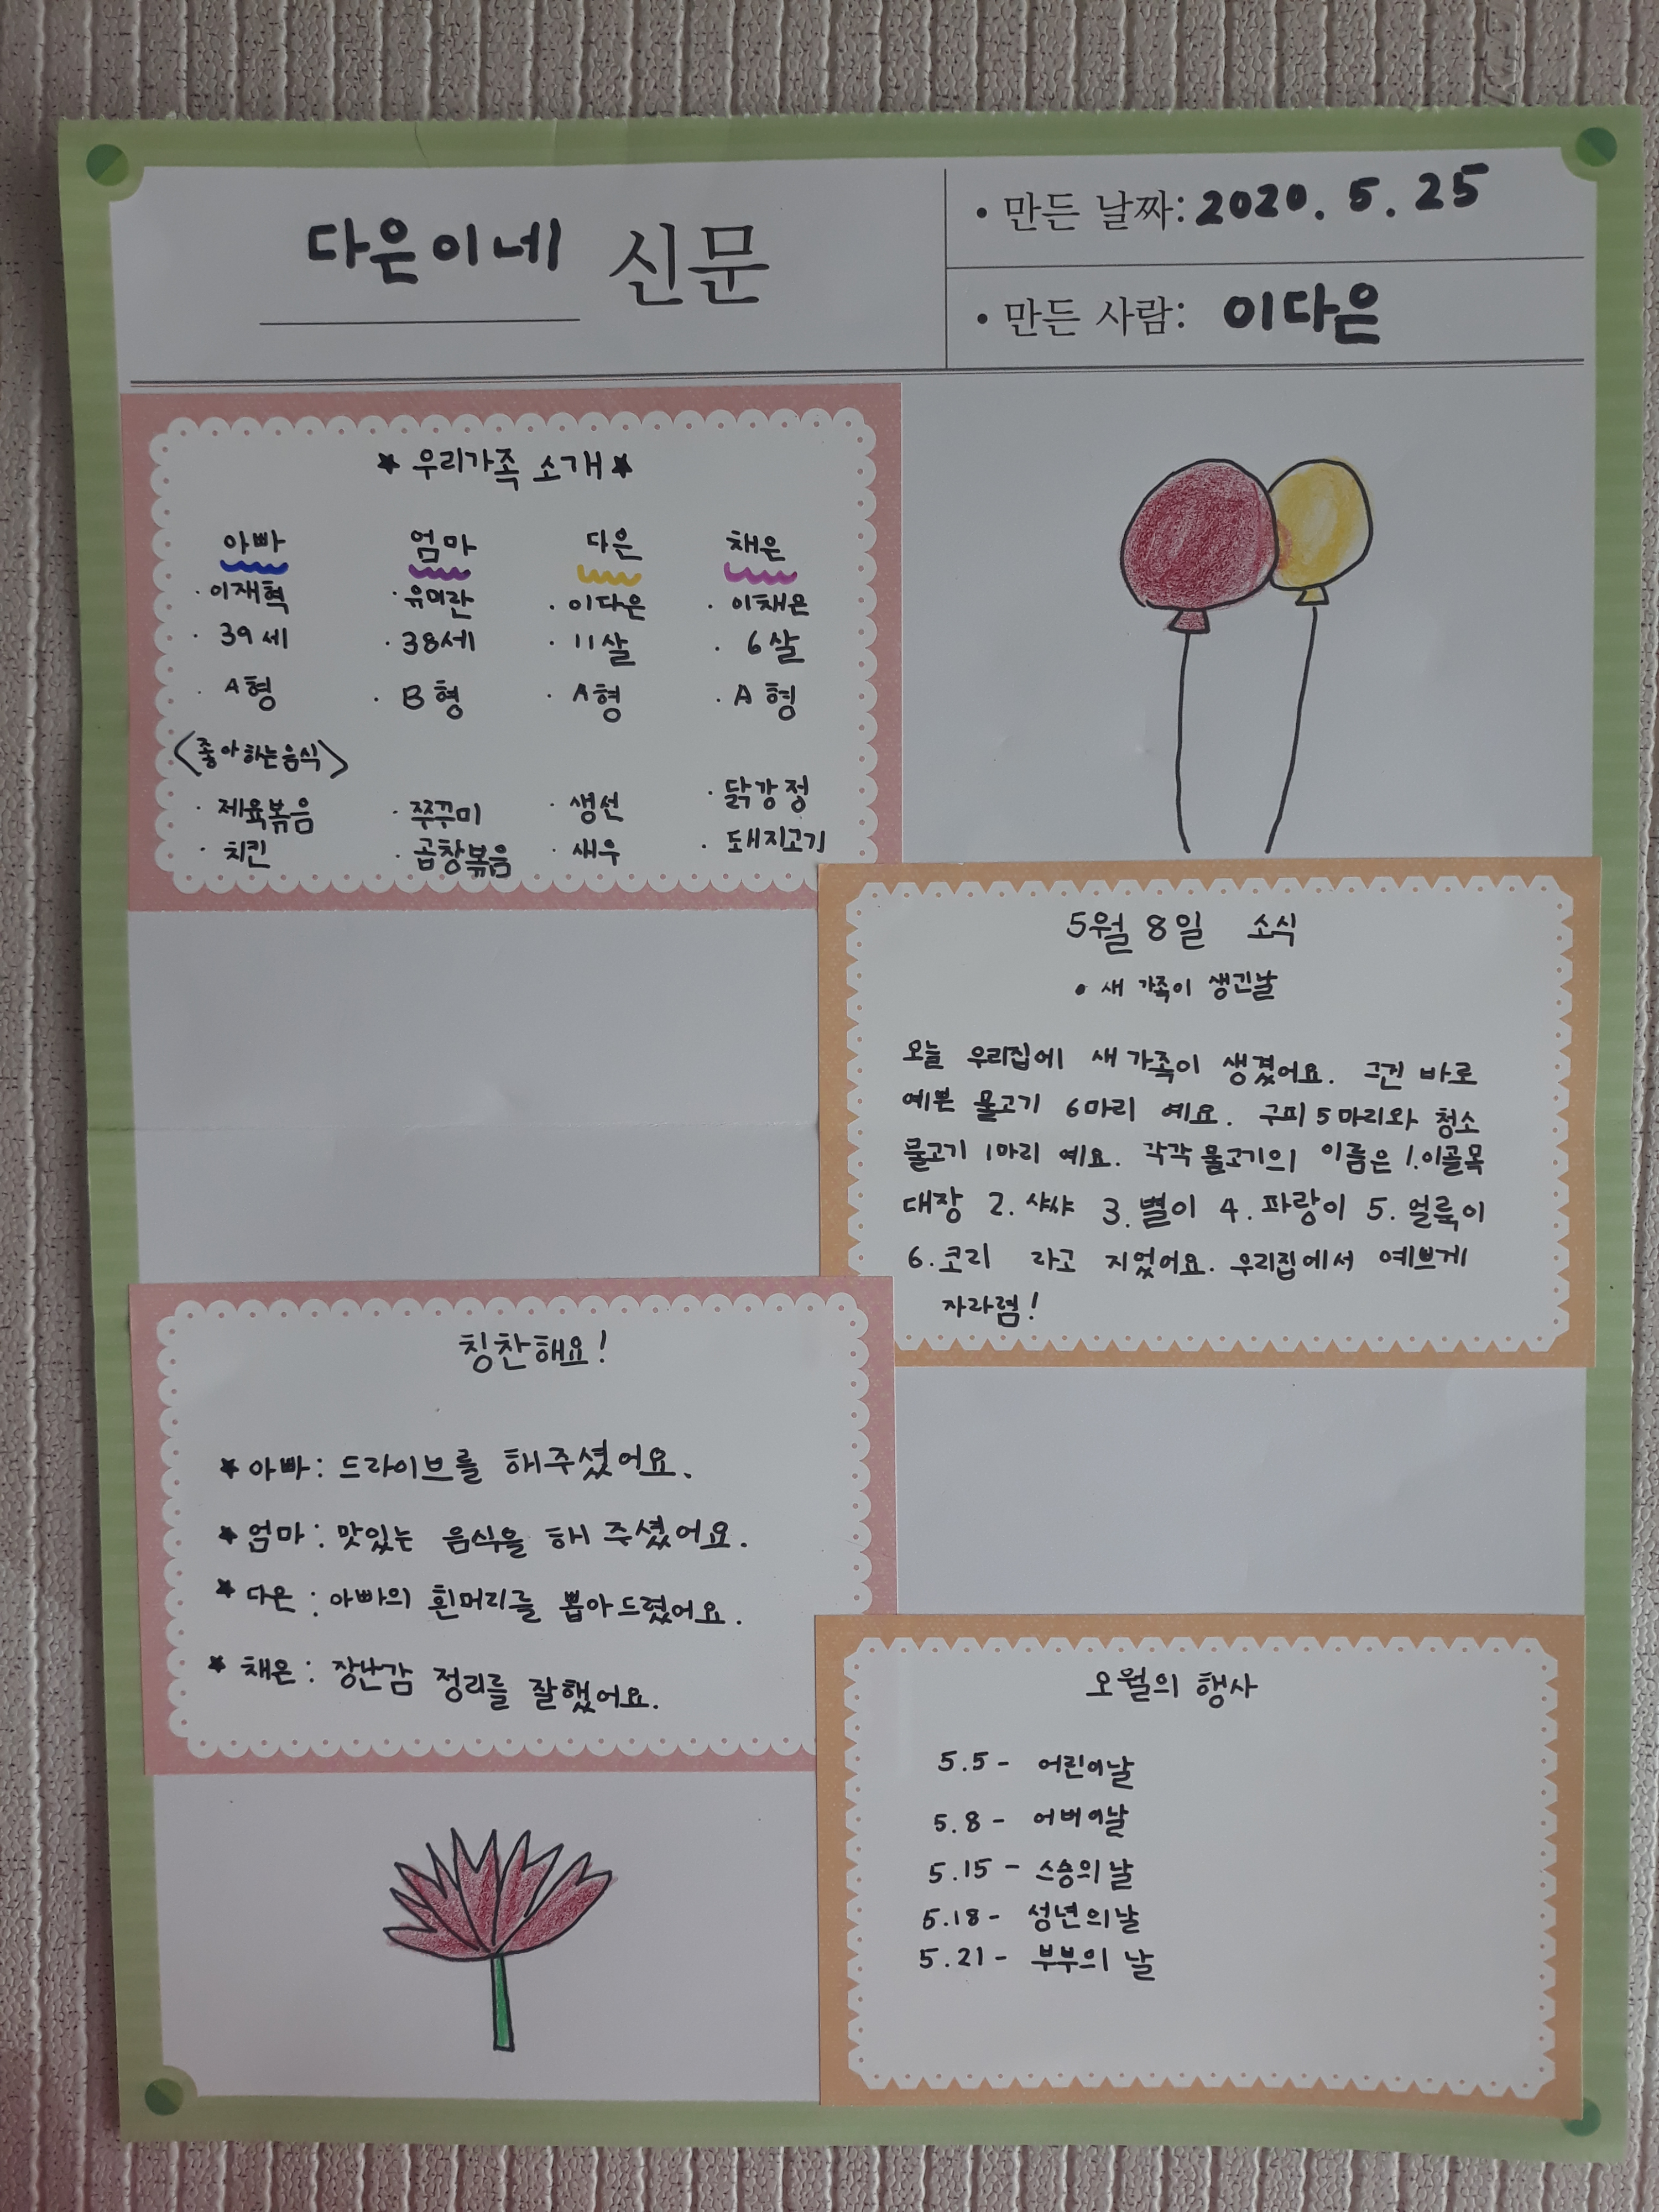 다은이네 신문
• 만든 날짜: 2020. 5. 25
• 만든 사람: 이다은
★ 우리가족 소개 ★
아빠 엄마 다은 채은
· 이재혁 · 유미란 · 이다은 · 이채은
· 39세 · 38세 · 11살 · 6살
· A형 · B형 · A형 · A형
<좋아하는음식>
· 제육볶음 · 쭈꾸미 · 생선 · 닭강정
· 치킨 · 곱창볶음 · 새우 · 돼지고기
5월 8일 소식
• 새 가족이 생긴날
오늘 우리집에 새 가족이 생겼어요. 그건 바로
예쁜 물고기 6마리 예요. 구피 5마리와 청소
물고기 1마리 예요. 각각 물고기의 이름은 1.이골목
대장 2. 샤샤 3. 별이 4. 파랑이 5. 얼룩이
6. 코리 라고 지었어요. 우리집에서 예쁘게
자라렴!
칭찬해요!
★ 아빠: 드라이브를 해주셨어요.
★ 엄마: 맛있는 음식을 해 주셨어요.
★ 다은: 아빠의 흰머리를 뽑아드렸어요.
★ 채은: 장난감 정리를 잘했어요.
오월의 행사
5.5 - 어린이날
5.8 - 어버이날
5.15 - 스승의 날
5.18 - 성년의날
5.21 - 부부의 날